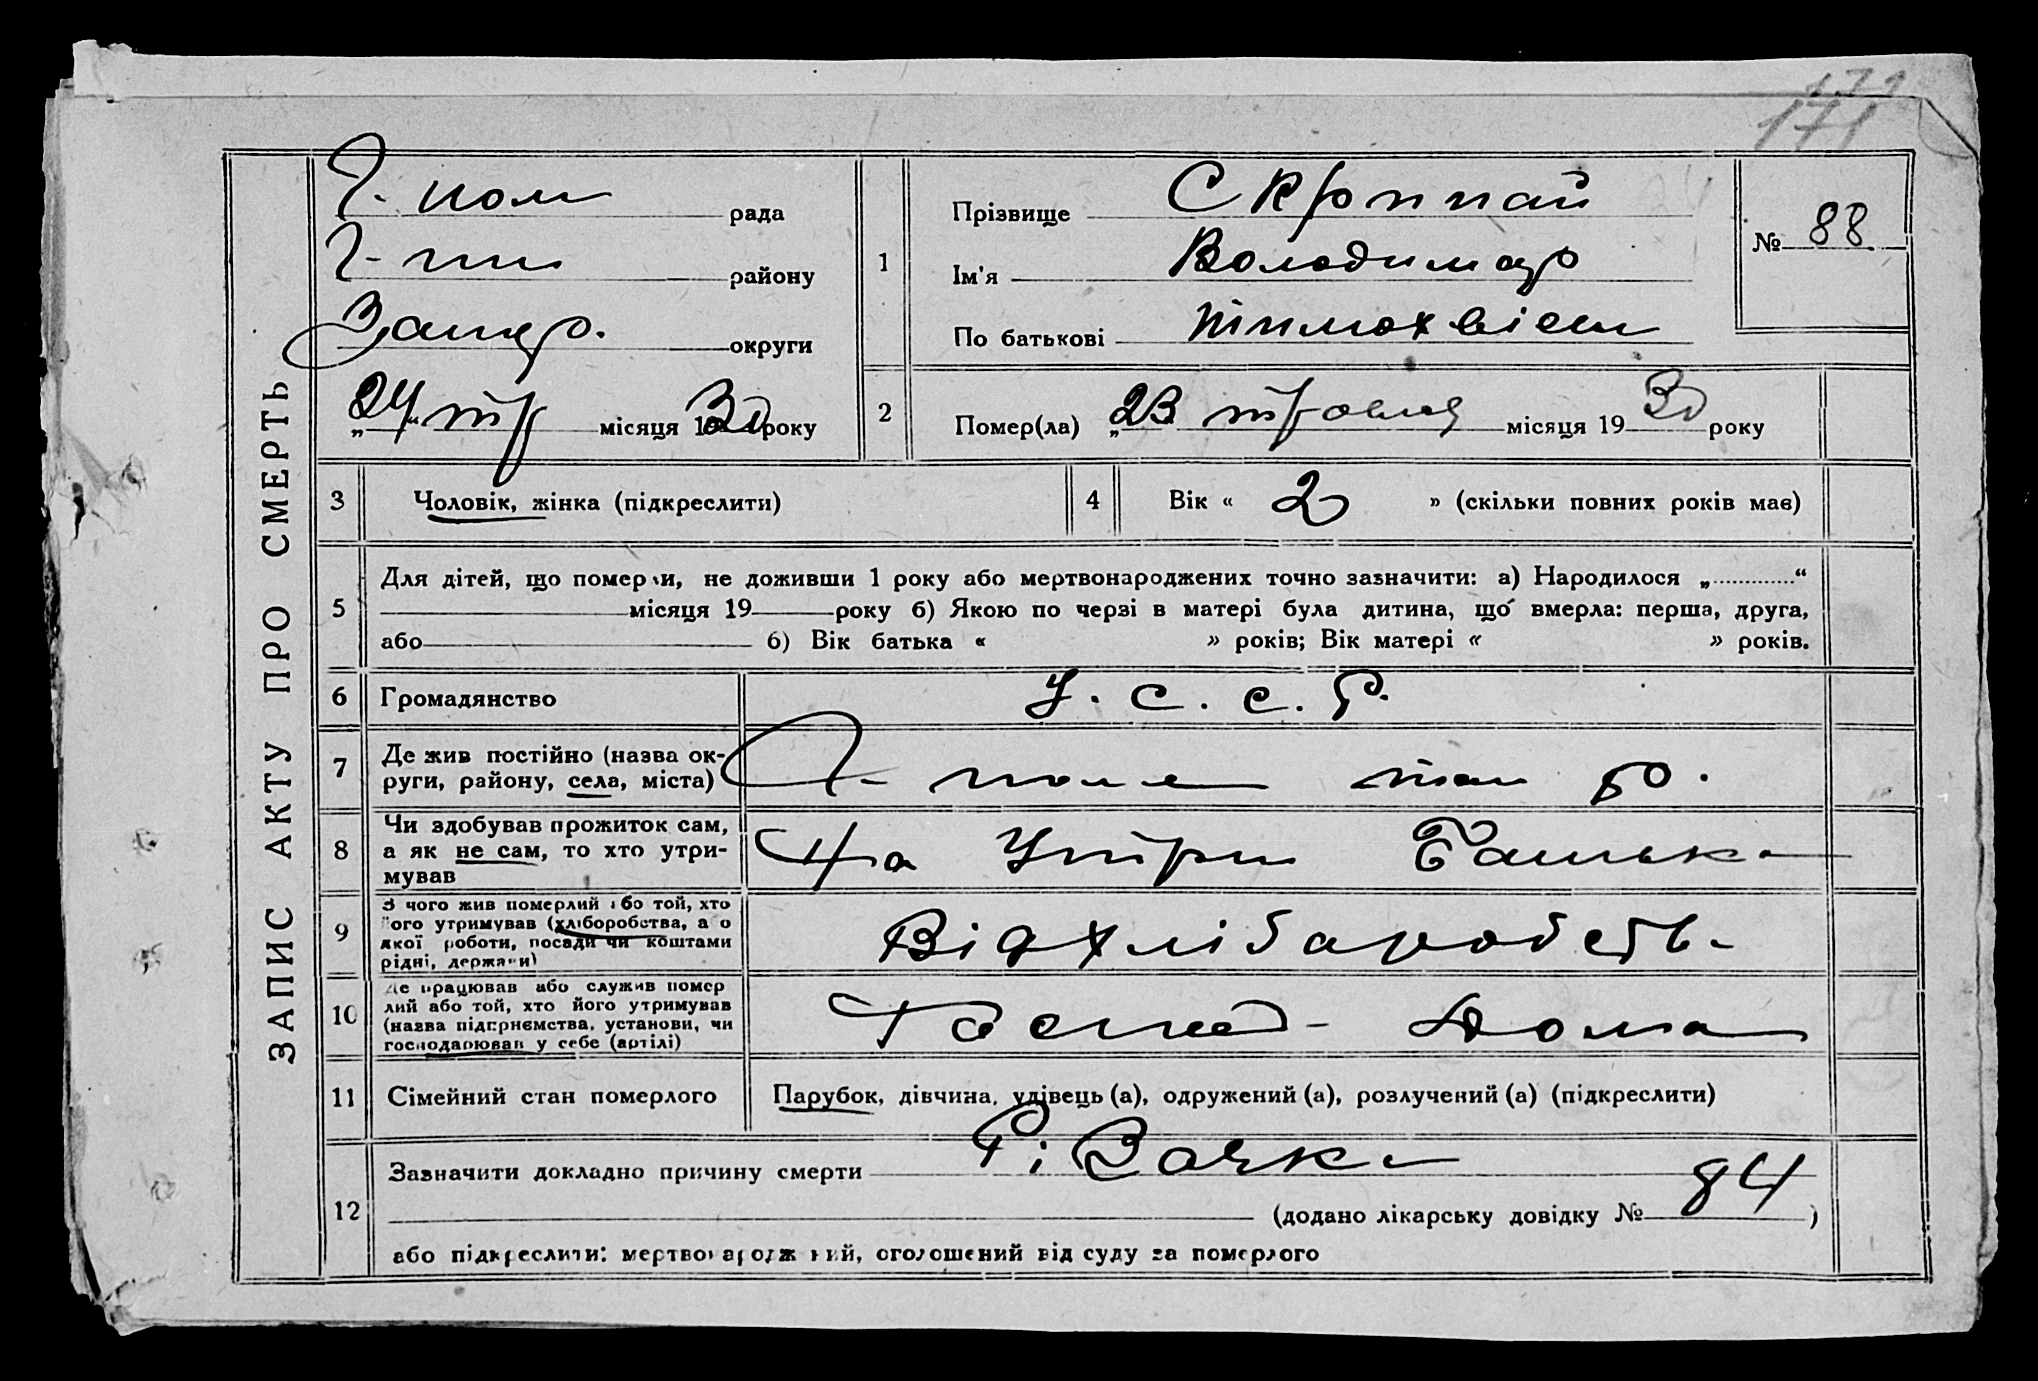 171
ЗАПИС АКТУ ПРО СМЕРТЬ
Г-пол рада
району
Запор. округи
„24“ тр місяця 1930 року
1
Прізвище Скрипай
Ім'я Володимир
По батькові Тимохвієв
№ 88
2
Помер(ла) „23 травня місяця 1930 року
3
Чоловік, жінка (підкреслити)
4
Вік « 2 » (скільки повних років має)
5
Для дітей, що померли, не доживши 1 року або мертвонароджених точно зазначити: а) Народилося „ “
місяця 19 року б) Якою по черзі в матері була дитина, що вмерла: перша, друга,
або б) Вік батька « » років; Вік матері « » років.
6
Громадянство
У. С. С. Р.
7
Де жив постійно (назва ок-
руги, району, села, міста)
Г-поле
8
Чи здобував прожиток сам,
а як не сам, то хто утри-
мував
На Утрим Батька
9
З чого жив померлий або той, хто
його утримував (хліборобства, а о
якої роботи, посади чи коштами
рідні, держави)
Від хлібаробств
10
Де працював або служив помер
лий або той, хто його утримував
(назва підприємства, установи, чи
господарював у себе (артілі)
Госпед- Дома
11
Сімейний стан померлого
Парубок, дівчина, удівець (а), одружений (а), розлучений (а) (підкреслити)
12
Зазначити докладно причину смерти
(додано лікарську довідку № 84)
або підкреслити: мертвонароджений, оголошений від суду за померлого